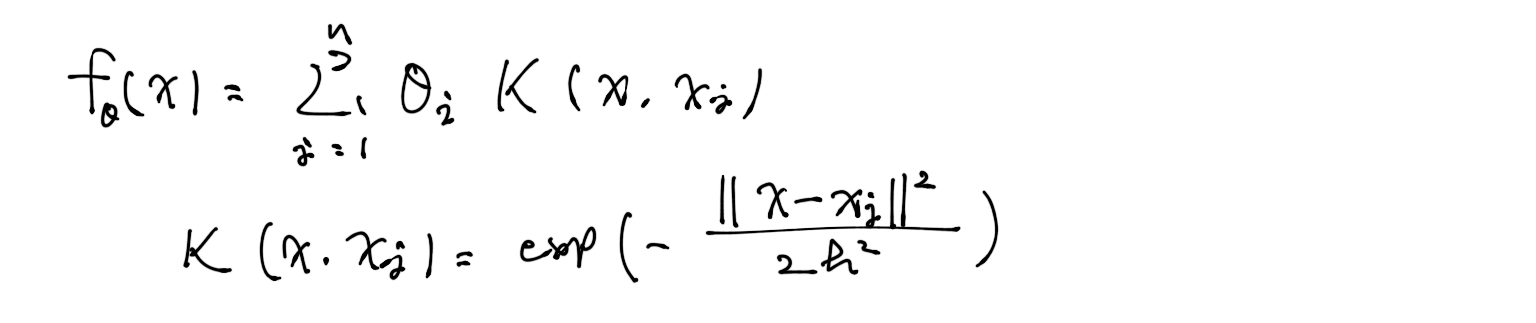 f_θ(x) = \sum_{j=1}^{n} θ_j K(x, x_j)
K(x, x_j) = exp(-\frac{||x-x_j||^2}{2h^2})